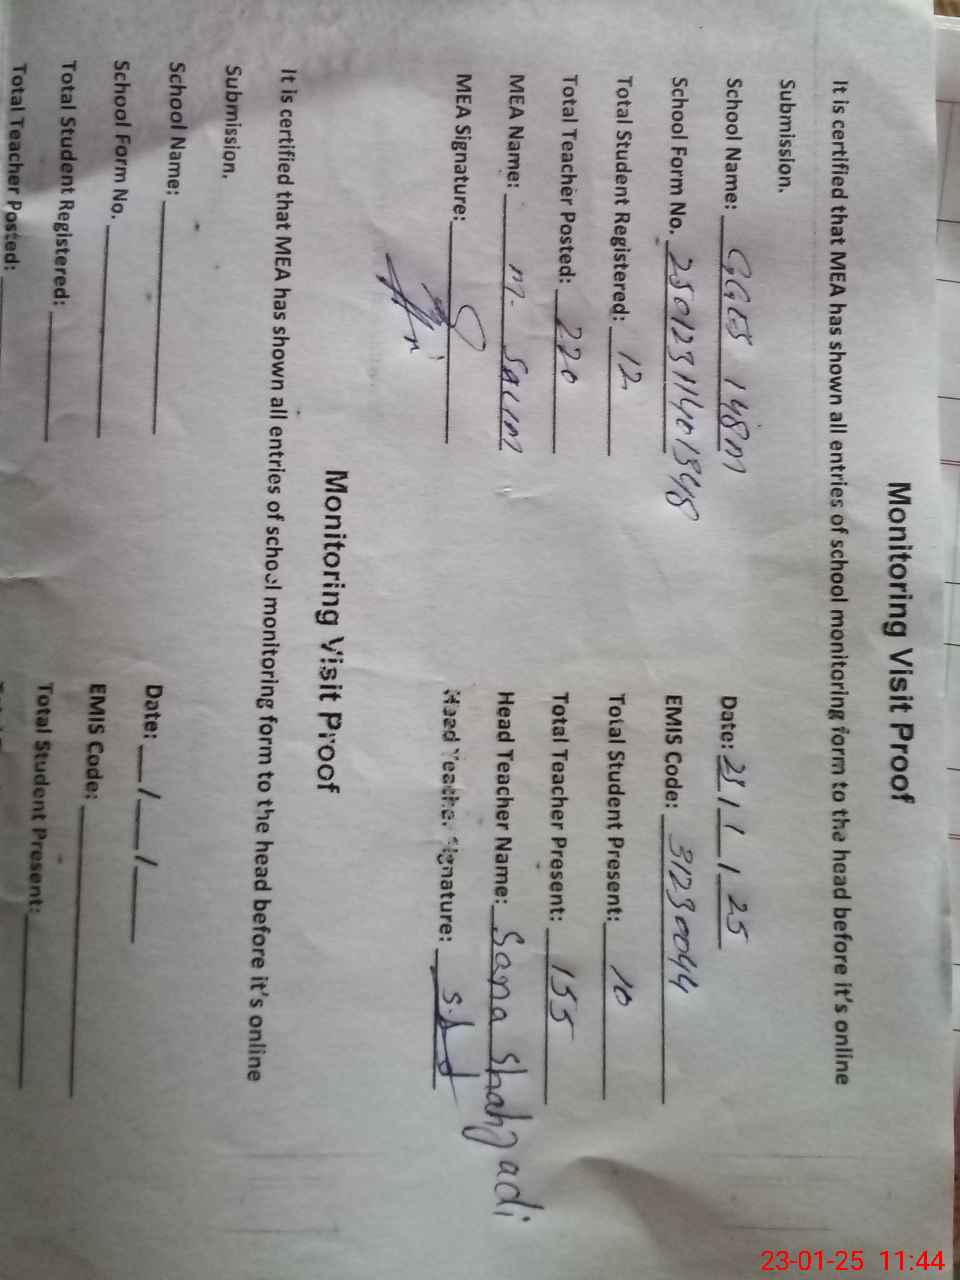 Monitoring Visit Proof
It is certified that MEA has shown all entries of school monitoring form to the head before it's online
Submission.
School Name: GGES 148m Date: 23/1/25
School Form No. EMIS Code: 31230044
Total Student Registered: 12 Total Student Present: 10
Total Teacher Posted: 220 Total Teacher Present: 155
MEA Name: m. Salim Head Teacher Name: Sana Shahzadi
MEA Signature: Head Teacher Signature:
Monitoring Visit Proof
It is certified that MEA has shown all entries of school monitoring form to the head before it's online
Submission.
School Name: Date: __/__/__
School Form No. EMIS Code:
Total Student Registered: Total Student Present:
Total Teacher Posted:
23-01-25 11:44